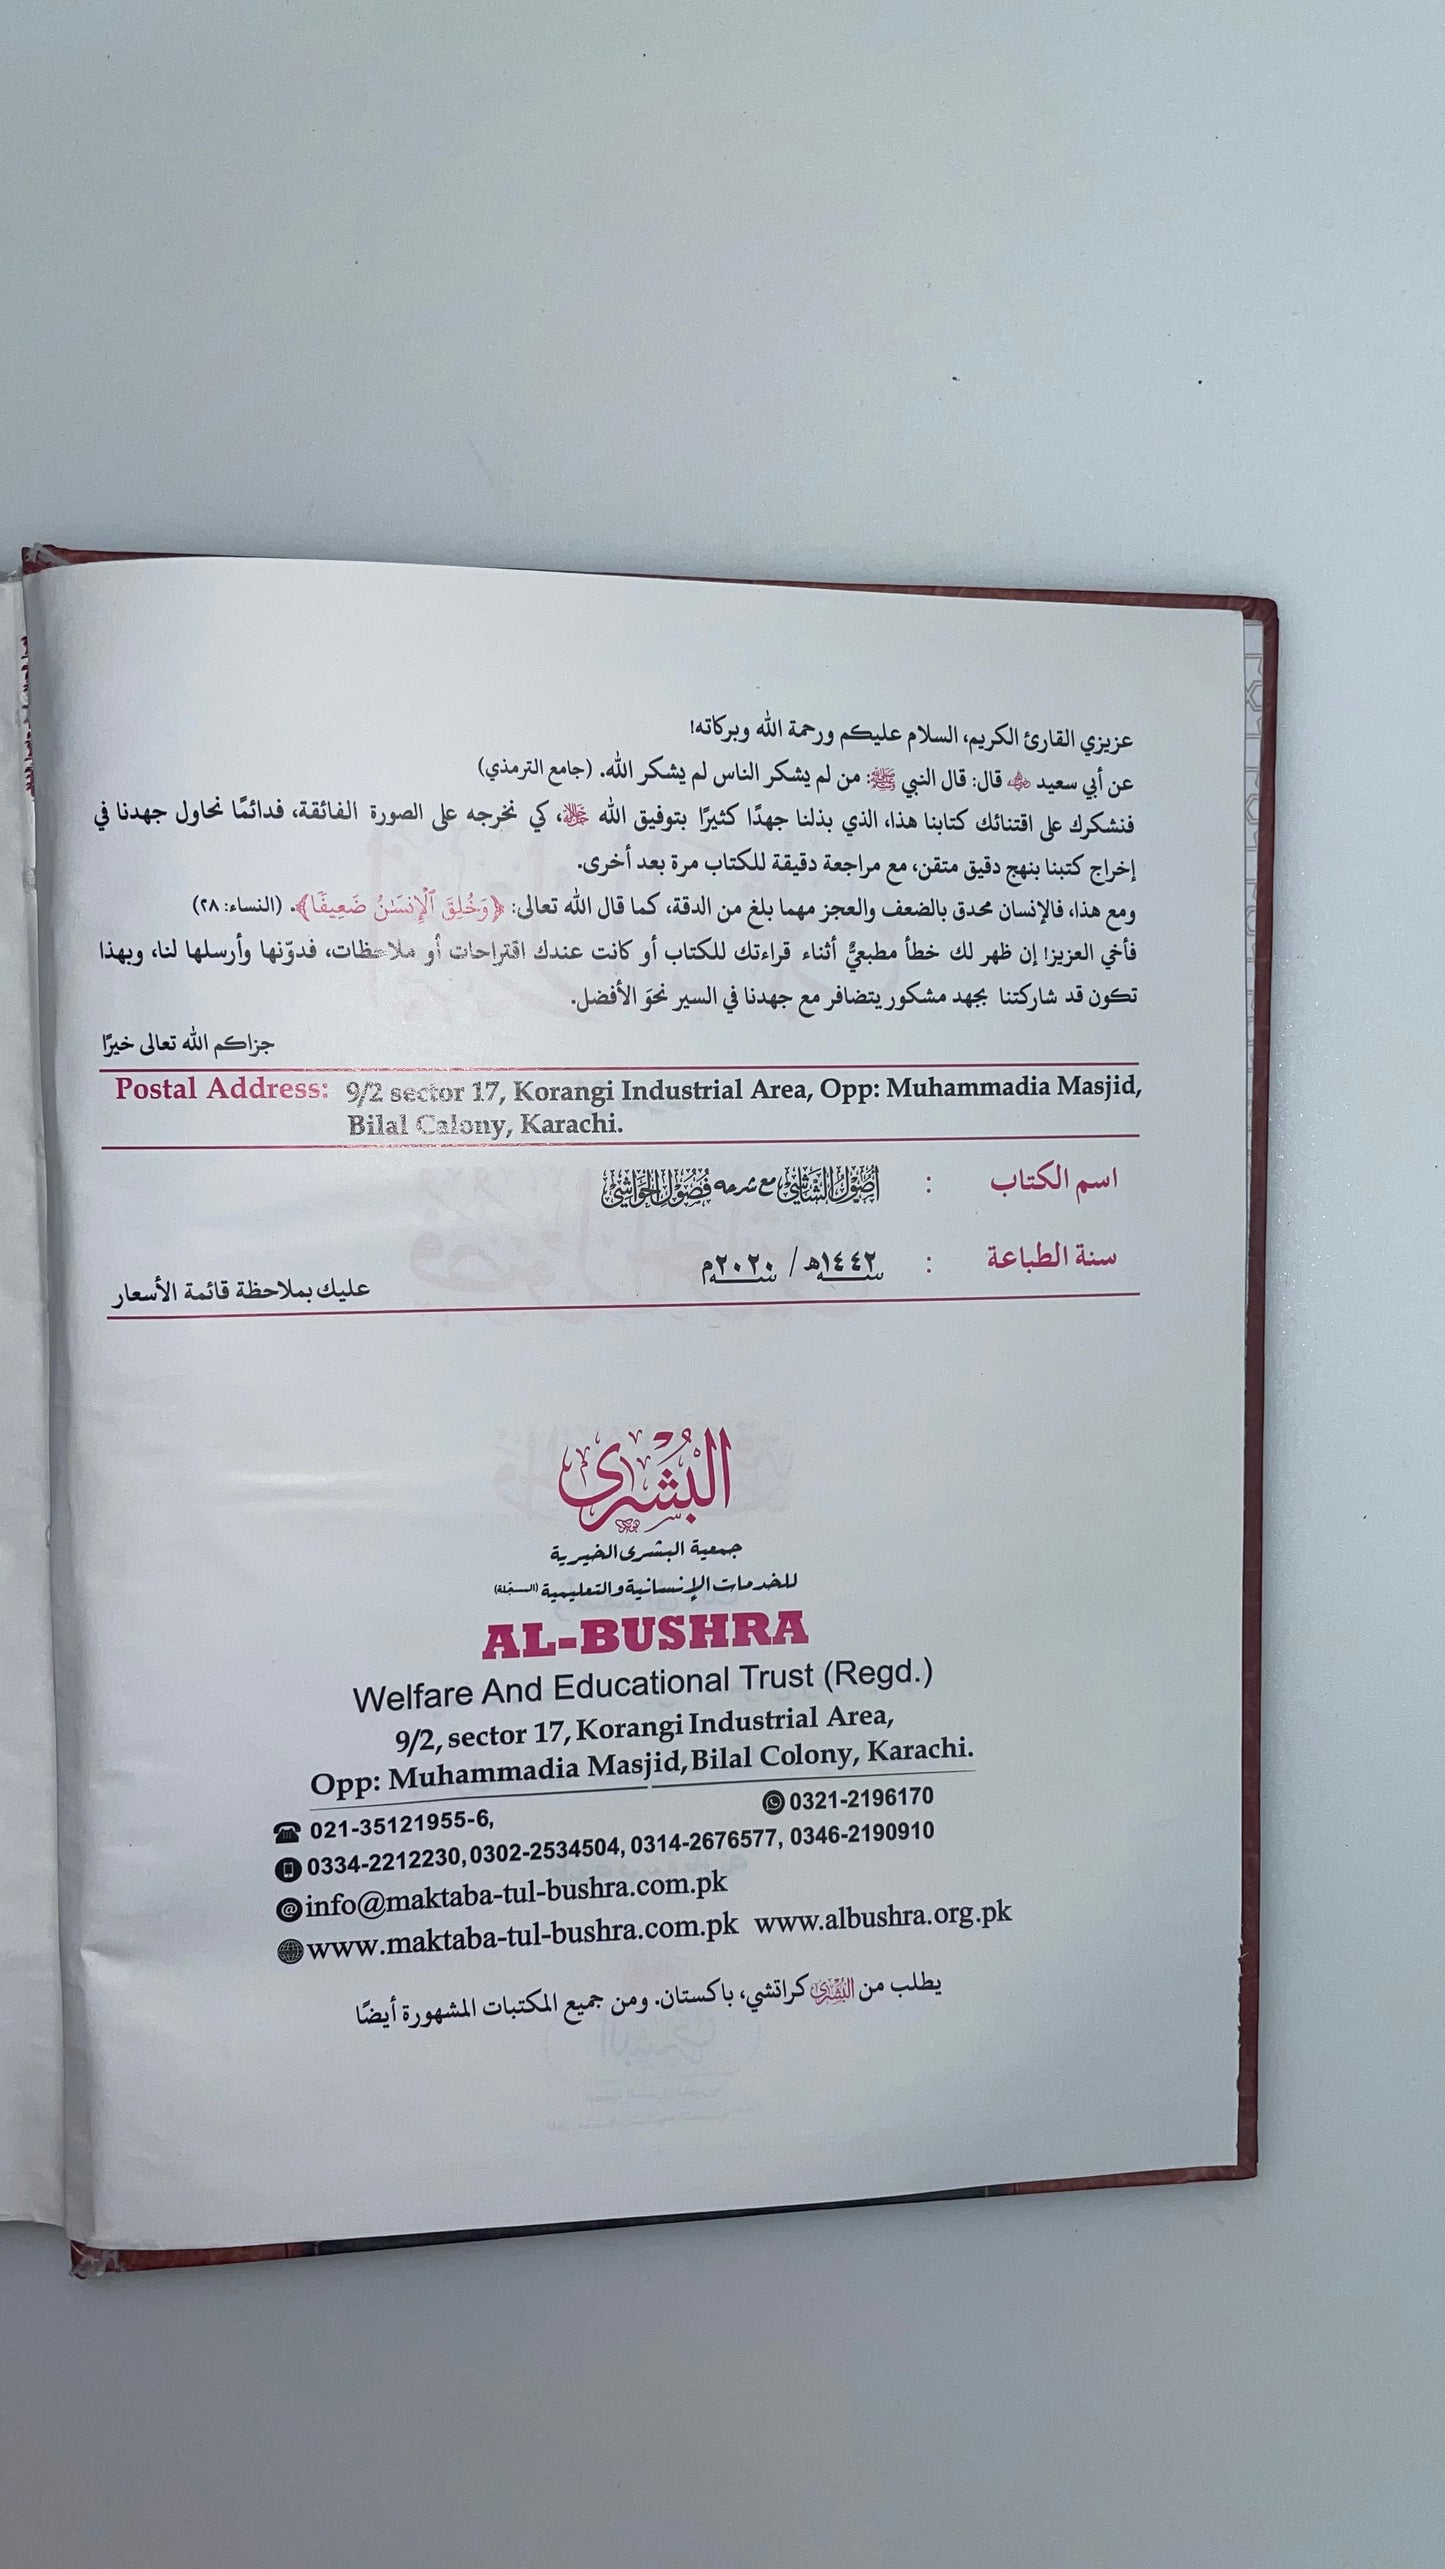 عزيزي القارئ الكريم، السلام عليكم ورحمة الله وبركاته!
عن أبي سعيد ﷺ قال: قال النبي ﷺ: من لم يشكر الناس لم يشكر الله. (جامع الترمذي)
فنشكرك على اقتنائك كتابنا هذا، الذي بذلنا جهدًا كثيرًا بتوفيق الله ﷻ، كي نخرجه على الصورة الفائقة، فدائمًا نحاول جهدنا في
إخراج كتبنا بنهج دقيق متقن، مع مراجعة دقيقة للكتاب مرة بعد أخرى.
ومع هذا، فالإنسان محدق بالضعف والعجز مهما بلغ من الدقة، كما قال الله تعالى: ﴿وَخُلِقَ ٱلْإِنسَـٰنُ ضَعِيفًا﴾. (النساء: ٢٨)
فأخي العزيز! إن ظهر لك خطأ مطبعيٌّ أثناء قراءتك للكتاب أو كانت عندك اقتراحات أو ملاحظات، فدوّنها وأرسلها لنا، وبهذا
تكون قد شاركتنا بجهد مشكور يتضافر مع جهدنا في السير نحوَ الأفضل.
جزاكم الله تعالى خيرًا
Postal Address: 9/2 sector 17, Korangi Industrial Area, Opp: Muhammadia Masjid,
Bilal Calony, Karachi.
اسم الكتاب : أصول الشاشي مع شرحه فصول الحواشي
سنة الطباعة : ١٤٤٢هـ / ٢٠٢٠م
عليك بملاحظة قائمة الأسعار
البُشرى
جمعية البشرى الخيرية
للخدمات الإنسانية والتعليمية (المسجّلة)
AL-BUSHRA
Welfare And Educational Trust (Regd.)
9/2, sector 17, Korangi Industrial Area,
Opp: Muhammadia Masjid, Bilal Colony, Karachi.
021-35121955-6, 0321-2196170
0334-2212230, 0302-2534504, 0314-2676577, 0346-2190910
info@maktaba-tul-bushra.com.pk
www.maktaba-tul-bushra.com.pk www.albushra.org.pk
يطلب من البشرى كراتشي، باكستان. ومن جميع المكتبات المشهورة أيضًا